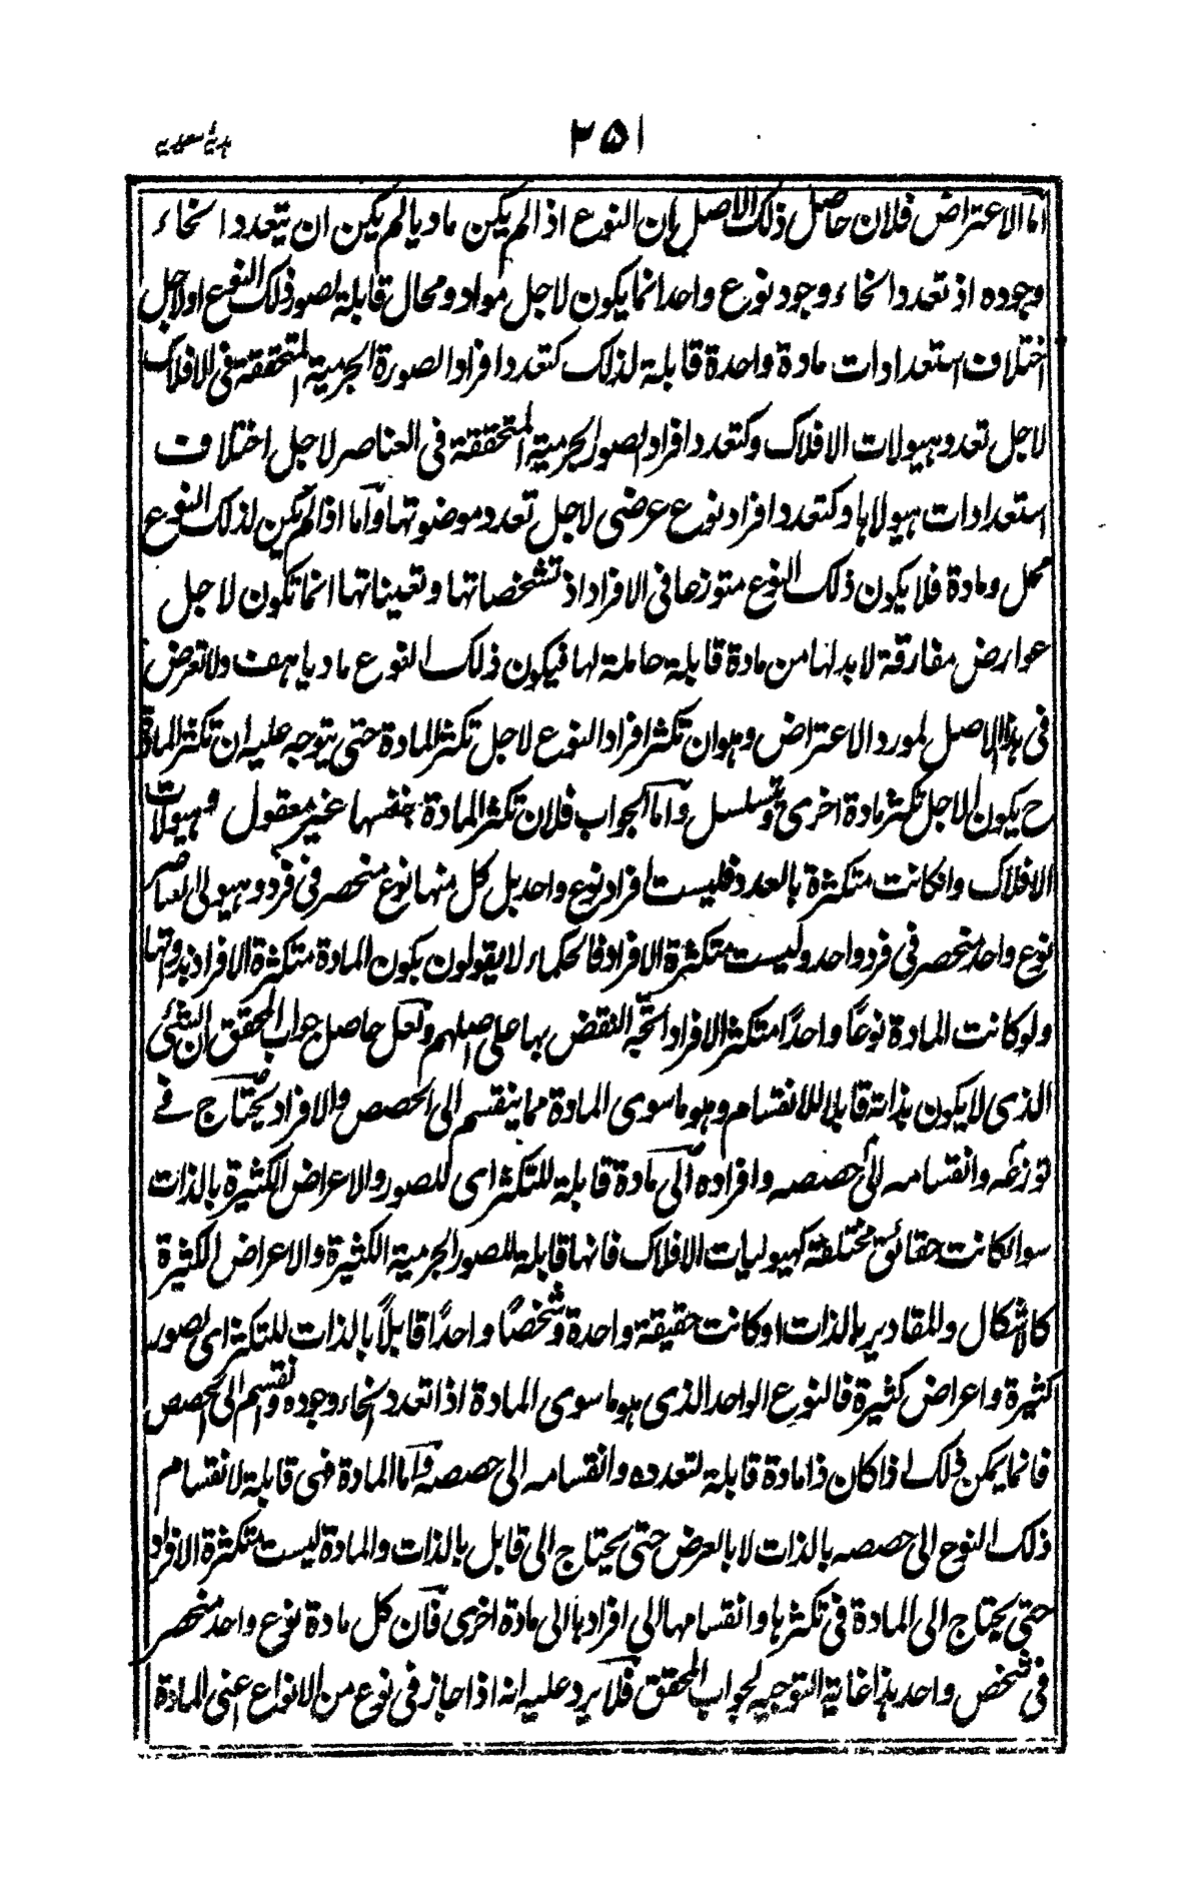 ٢٥١
ہدیۂ سعیدیہ
اما الاعتراض فلان حاصل ذلک الاصل ان النوع اذا لم یکن مادیا لم یکن ان یتعدد انحاء
وجوده اذ تعدد انحاء وجود نوع واحد انما یکون لاجل مواد ومحال قابلة لصور ذلک النوع او لاجل
اختلاف استعدادات مادة واحدة قابلة لذلک کتعدد افراد الصورة الجرمیة المتحققة فی الافلاک
لاجل تعدد هیولات الافلاک وکتعدد افراد الصور الجرمیة المتحققة فی العناصر لاجل اختلاف
استعدادات هیولاها وکتعدد افراد نوع عرضی لاجل تعدد موضوعتها واما اذا لم یکن لذلک النوع
محل ومادة فلا یکون ذلک النوع متوزعا فی الافراد اذ تشخصاتها وتعیناتها انما تکون لاجل
عوارض مفارقة لا بد لها من مادة قابلة حاملة لها فیکون ذلک النوع مادیا هف ولا تعرض
فی هذا الاصل لمورد الاعتراض وهو ان تکثر افراد النوع لاجل تکثر المادة حتی یتوجه علیه ان تکثر المادة
ح یکون لاجل تکثر مادة اخری وتسلسل واما الجواب فلان تکثر المادة بنفسها غیر معقول وهیولات
الافلاک وانکانت متکثرة بالعدد فلیست افراد نوع واحد بل کل منها نوع منحصر فی فرد وهیولی العناصر
نوع واحد منحصر فی فرد واحد ولیست متکثرة الافراد فالحکماء لا یقولون بکون المادة متکثرة الافراد بذواتها
ولو کانت المادة نوعًا واحدًا متکثر الافراد اتجه النقض بها علی اصلهم ولعل حاصل جواب المحقق ان الشئ
الذی لا یکون بذاته قابلا للانقسام وهو ما سوی المادة مما ینقسم الی الحصص والافراد یحتاج فے
توزعه وانقسامه الی حصصه وافراده الی مادة قابلة للتکثر ای للصور والاعراض الکثیرة بالذات
سواء کانت حقائق مختلفة کهیولیات الافلاک فانها قابلة للصور الجرمیة الکثیرة والاعراض الکثیرة
کالاشکال والمقادیر بالذات او کانت حقیقة واحدة وشخصًا واحدًا قابلاً بالذات للتکثر ای لصور
کثیرة واعراض کثیرة فالنوع الواحد الذی هو ما سوی المادة اذا تعدد انحاء وجوده وانقسم الی الحصص
فانما یمکن ذلک اذا کان ذا مادة قابلة لتعدده وانقسامه الی حصصه واما المادة فهی قابلة لانقسام
ذلک النوع الی حصصه بالذات لا بالعرض حتی یحتاج الی قابل بالذات والمادة لیست متکثرة الافراد
حتی یحتاج الی المادة فی تکثرها وانقسامها الی افرادها الی مادة اخری فان کل مادة نوع واحد منحصر
فی شخص واحد هذا غایة التوجیه لجواب المحقق فلا یرد علیه انه اذا جاز فی نوع من الانواع اعنی المادة